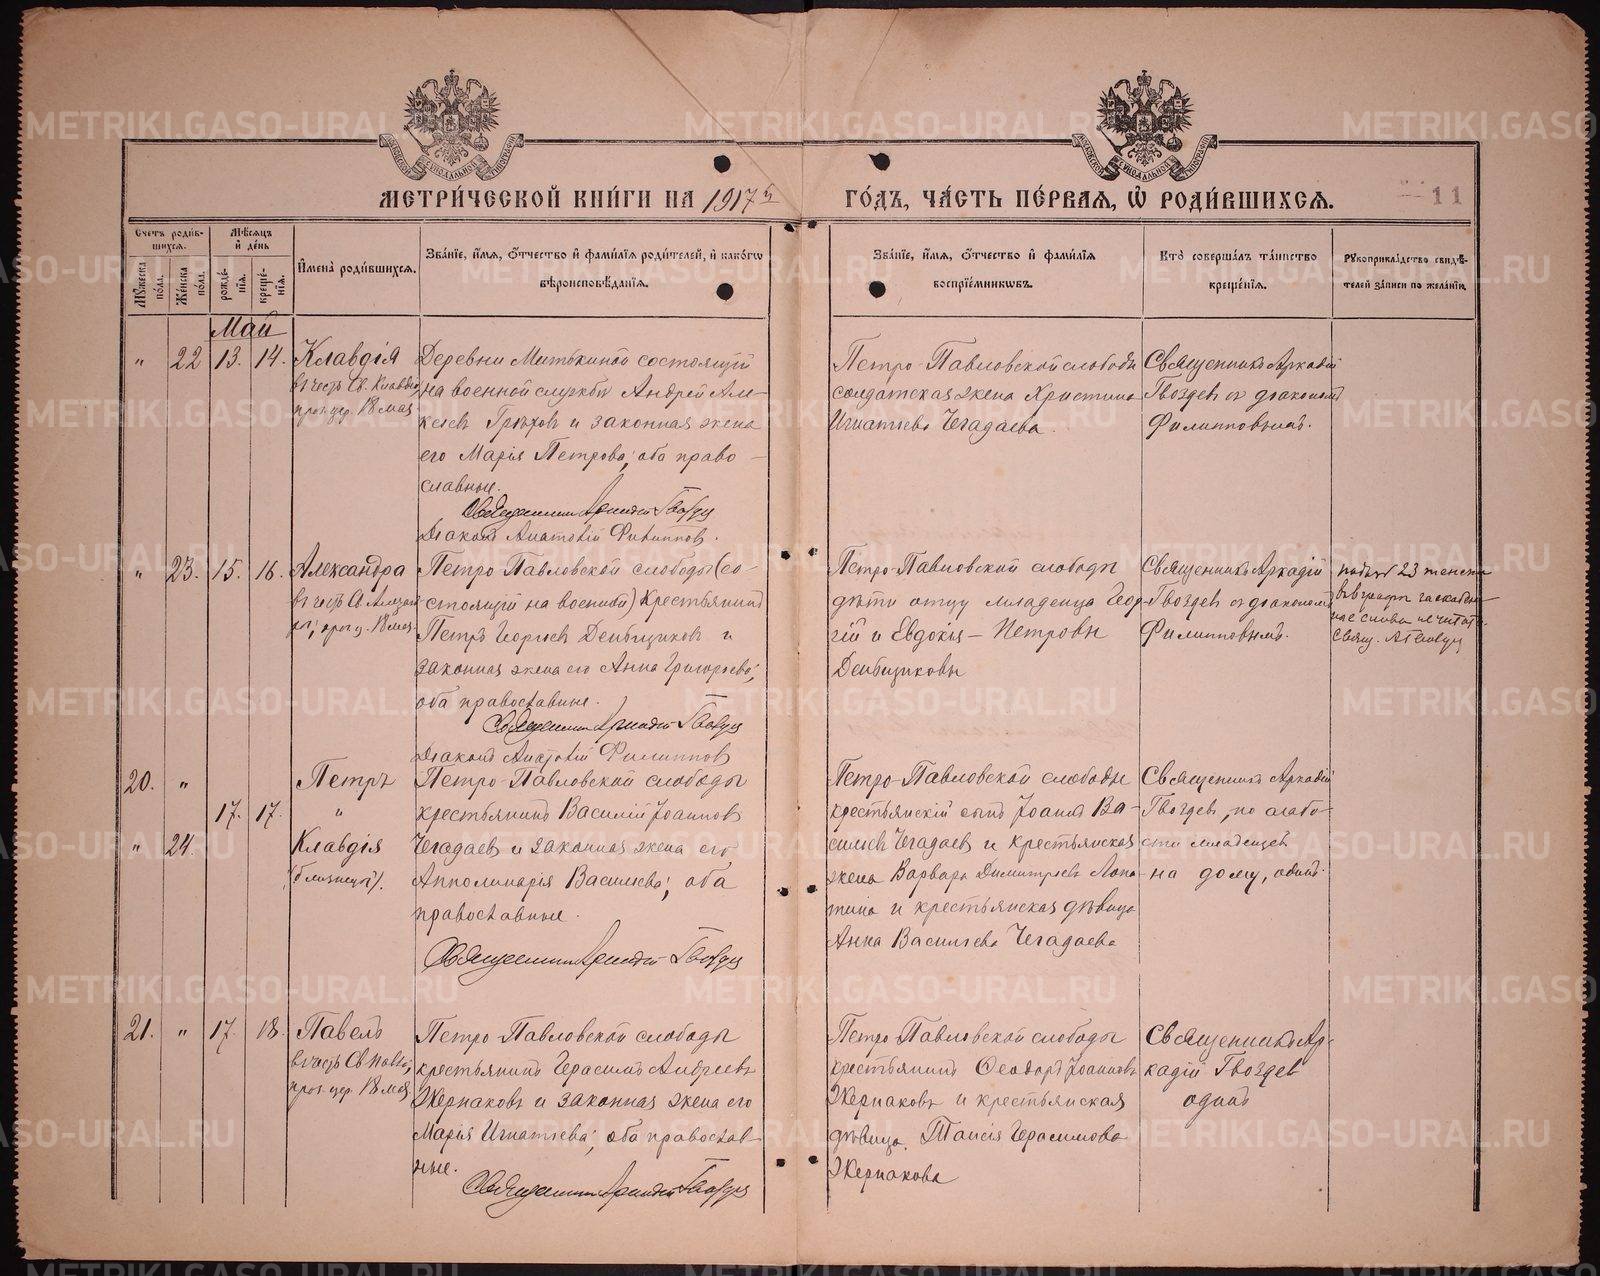 МЕТРИЧЕСКОЙ КНИГИ НА 1917й ГОДЪ, ЧАСТЬ ПЕРВАЯ, Ѽ РОДИВШИХСЯ.
11
Счетъ родив-
шихся.
Мужеска пола.
Женска пола.
Мѣсяцъ и день
рожде-
нія.
креще-
нія.
Имена родившихся.
Званіе, имя, отчество и фамилія родителей, и какогѡ
вѣроисповѣданія.
Званіе, имя, отчество и фамилія
воспріемникѡвъ.
Кто совершалъ таинство
крещенія.
Рукоприкладство свидѣ-
телей записи по желанію.
Май
" 22 13. 14.
Клавдія
въ честь Св. Клавдіи,
прот. цер. 18 мая.
Деревни Митькиной состоящій
на военной службѣ Андрей Але-
ксеев Грѣхов и законная жена
его Марія Петрова; оба право-
славные.
Священник Аркадій Гвоздев
Діаконъ Анатолій Филиппов.
Петро-Павловской слободы
солдатская жена Христина
Игнатьева Чегадаева.
Священникъ Аркадій
Гвоздев съ діакономъ
Филипповымъ.
" 23. 15. 16.
Александра
въ честь Св. Александ-
ры, 18 мая.
Петро-Павловской слободы (со-
стоящій на военной) крестьянинъ
Петръ Георгіев Деибициков и
законная жена его Анна Григорьева;
оба православные.
Священник Аркадій Гвоздев
Діаконъ Анатолій Филиппов
Петро-Павловской слободы
дѣти отцу младенца Геор-
гій и Евдокія – Петровы
Деибициковы
Священникъ Аркадій
Гвоздев съ діакономъ
Филипповымъ.
23 женска
въ графѣ
слова читать
Свящ. А Гвоздев
20. " 17. 17.
Петръ
"
" 24.
Клавдія
(близнецы).
Петро-Павловской слободы
крестьянинъ Василій Іоаннов
Чегадаев и законная жена его
Апполинарія Васильева; оба
православные.
Священник Аркадій Гвоздев
Петро-Павловской слободы
крестьянскій сынъ Іоаннъ Ва-
сильев Чегадаев и крестьянская
жена Варвара Димитріева Лопа-
тина и крестьянская дѣвица
Анна Васильева Чегадаева
Священникъ Аркадій
Гвоздев, по слабо-
сти младенцев
на дому, одинъ.
21. " 17. 18.
Павелъ
въ честь Св Павла,
прот. цер. 18 мая
Петро-Павловской слободы
крестьянинъ Герасимъ Андреев
Жернаков и законная жена его
Марія Игнатьева; оба православ-
ные.
Священник Аркадій Гвоздев
Петро-Павловской слободы
крестьянинъ Ѳеодоръ Іоаннов
Жернаков и крестьянская
дѣвица Таисія Герасимова
Жернакова
Священникъ Ар-
кадій Гвоздев
одинъ
METRIKI.GASO-URAL.RU